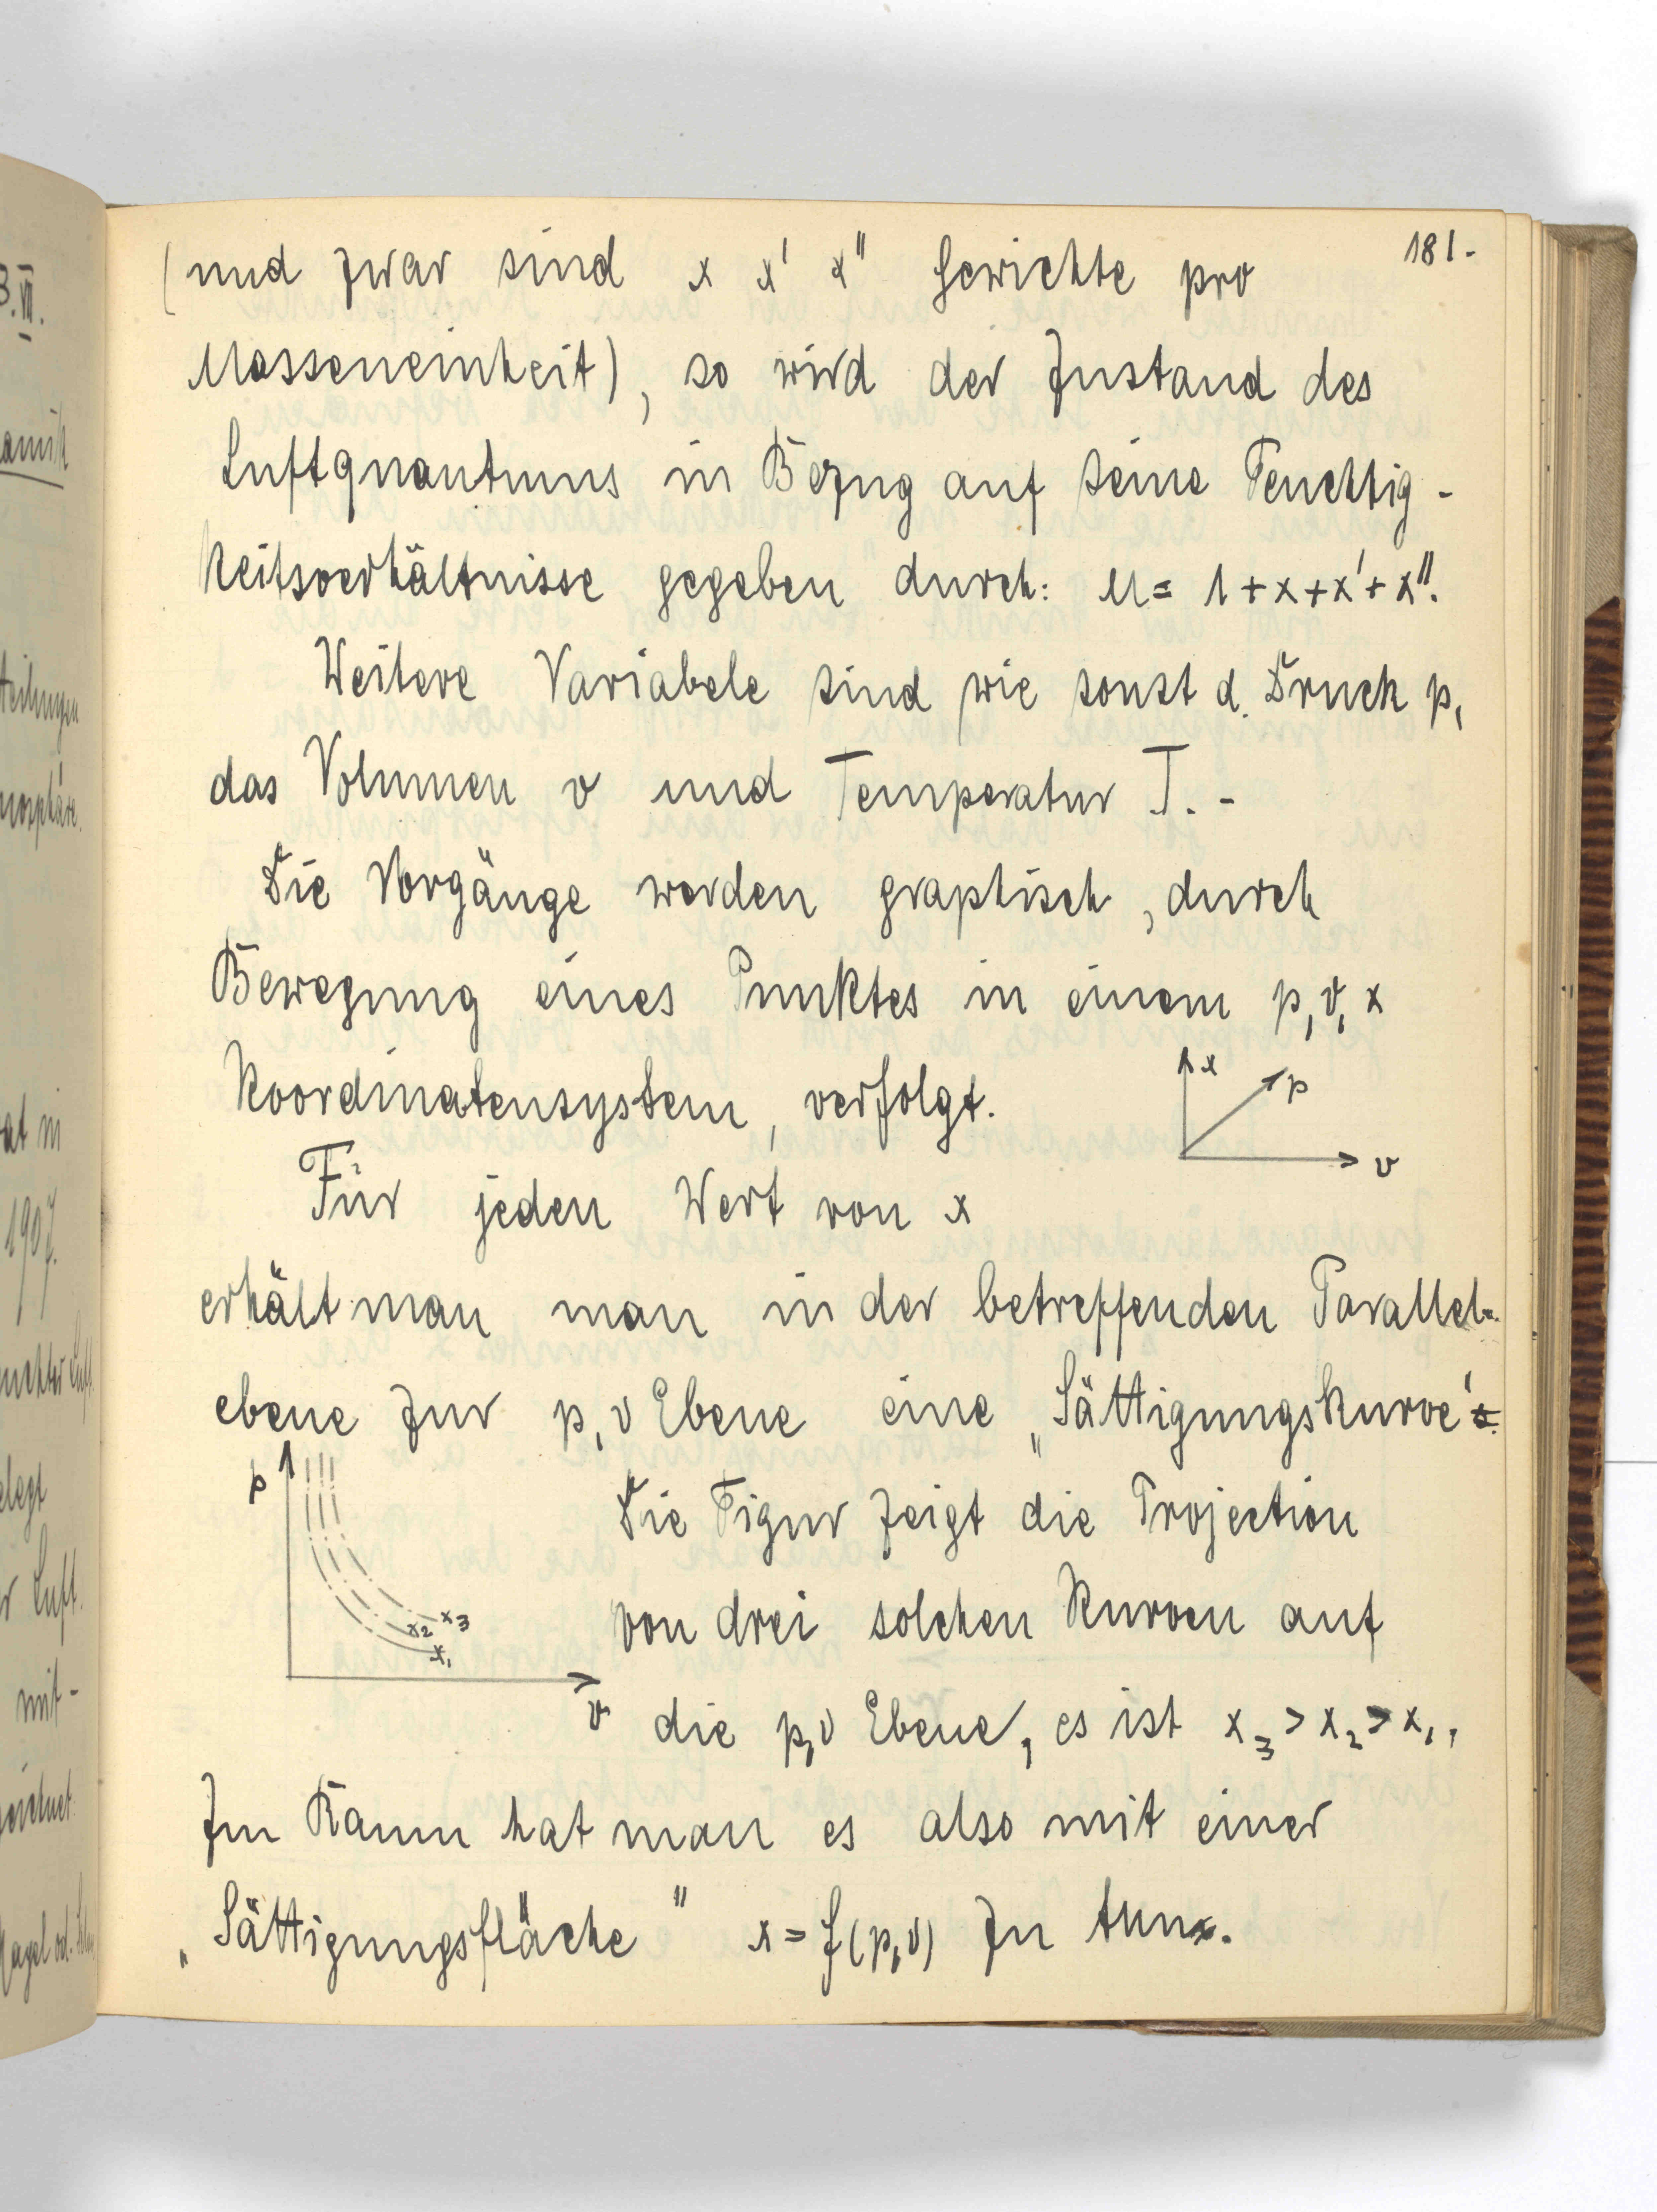 181.
(und zwar sind x x' x" Gewichte pro
Masseneinheit), so wird der Zustand des
Luftquantums in Bezug auf seine Feuchtig-
keitsverhältnisse gegeben durch: M = 1+x+x'+x".
Weitere Variabele sind wie sonst d. Druck p,
das Volumen v und Temperatur T. -
Die Vorgänge werden graphisch, durch
Bewegung eines Punktes in einem p, v, x
Koordinatensystem, verfolgt.
x
p
v
Für jeden Wert von x
erhält man man in der betreffenden Parallel-
ebene zur p, v Ebene eine „Sättigungskurve".
p
x3
x2
x1
v
Die Figur zeigt die Projection
von drei solchen Kurven auf
die p,v Ebene, es ist x3 > x2 > x1.
Im Raum hat man es also mit einer
„Sättigungsfläche" x = f(p,v) zu tun.
8.VII.
1907.
mit-